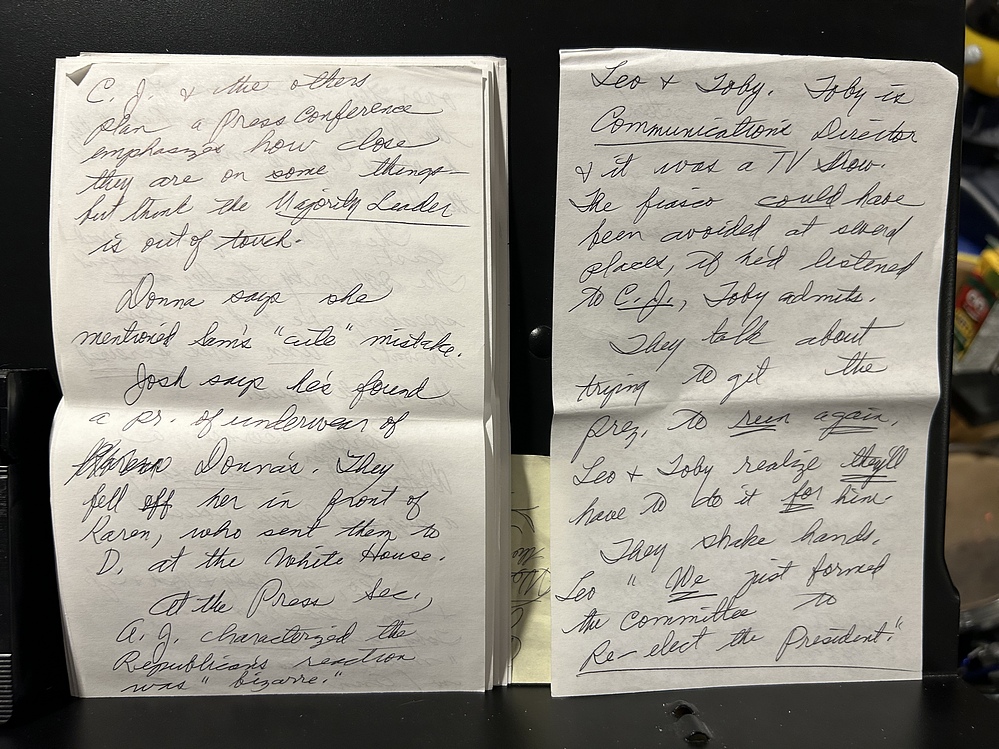 C. J. & the others
plan a press conference
emphasizes how close
they are on some things—
but think the Majority Leader
is out of touch.
Donna says she
mentioned Sam's "cute" mistake.
Josh says he's found
a pr. of underwear of
Donna's. They
fell off her in front of
Karen, who sent them to
D. at the White House.
At the Press Sec.,
A. J. characterized the
Republican's reaction
was "bizarre."
Leo & Toby. Toby is
Communications Director
& it was a TV show.
The fiasco could have
been avoided at several
places, if he'd listened
to C. J., Toby admits.
They talk about
trying to get the
prez. to run again.
Leo & Toby realize they'll
have to do it for him.
They shake hands.
Leo "We just formed
the committee to
Re-elect the President."